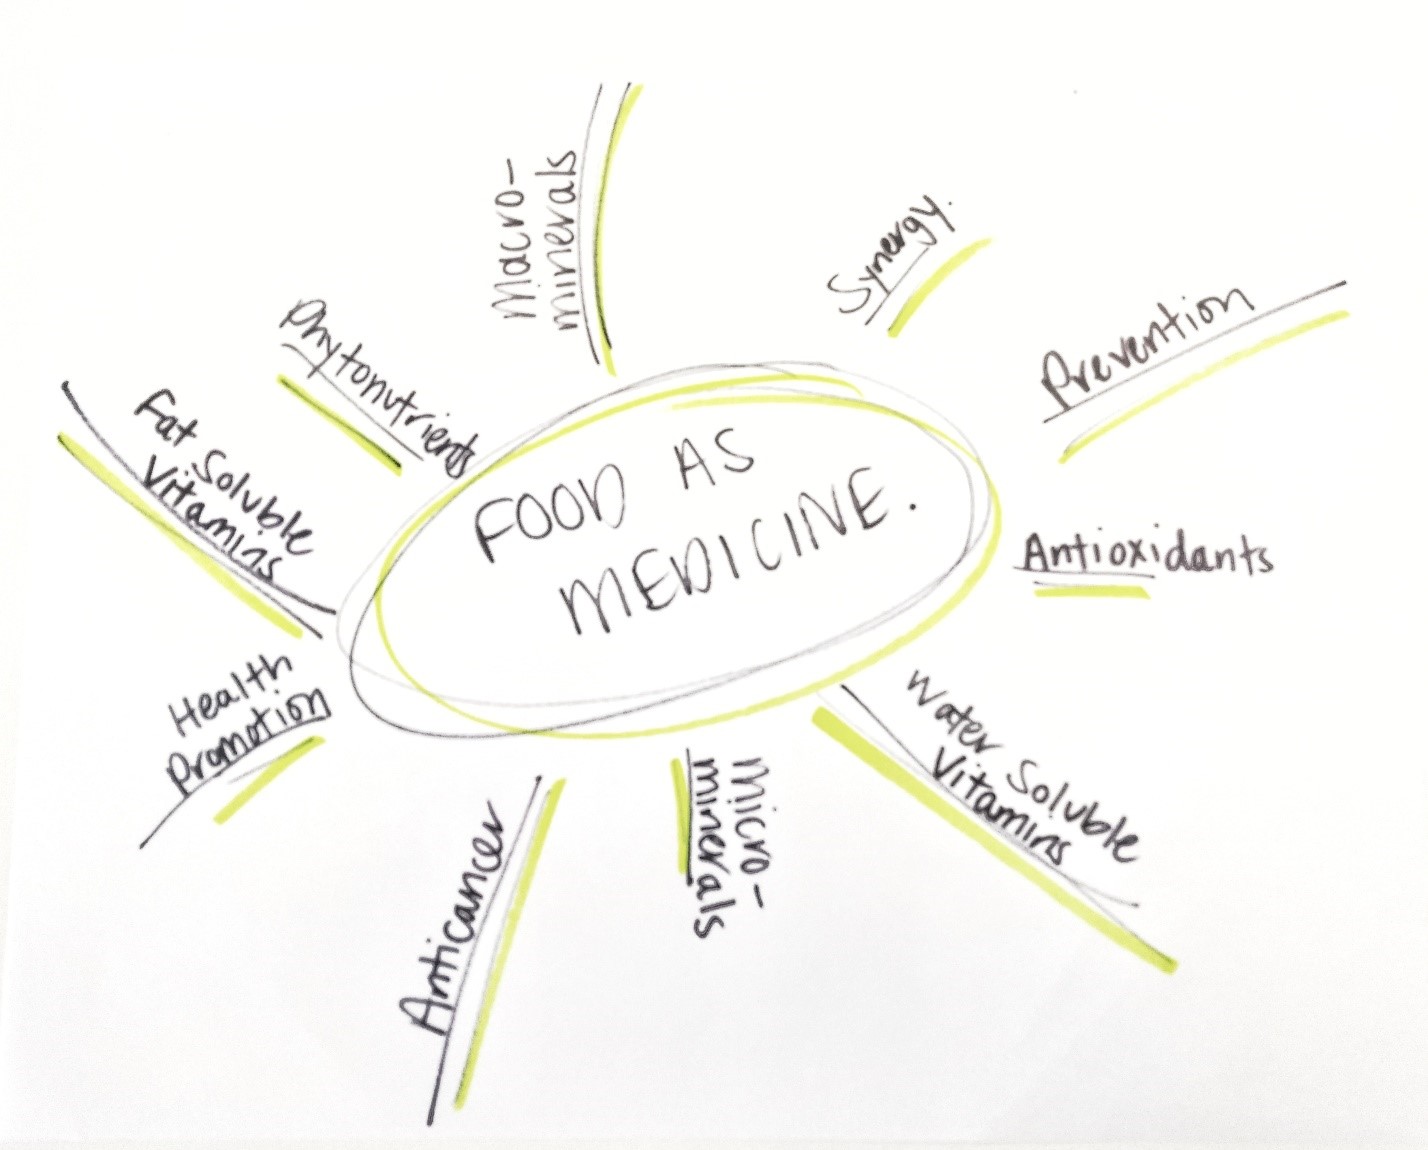 FOOD AS
MEDICINE.
Macro-
minerals
Synergy.
Prevention
Antioxidants
Water Soluble
Vitamins
Micro-
minerals
Anticancer
Health
Promotion
Fat Soluble
Vitamins
Phytonutrients